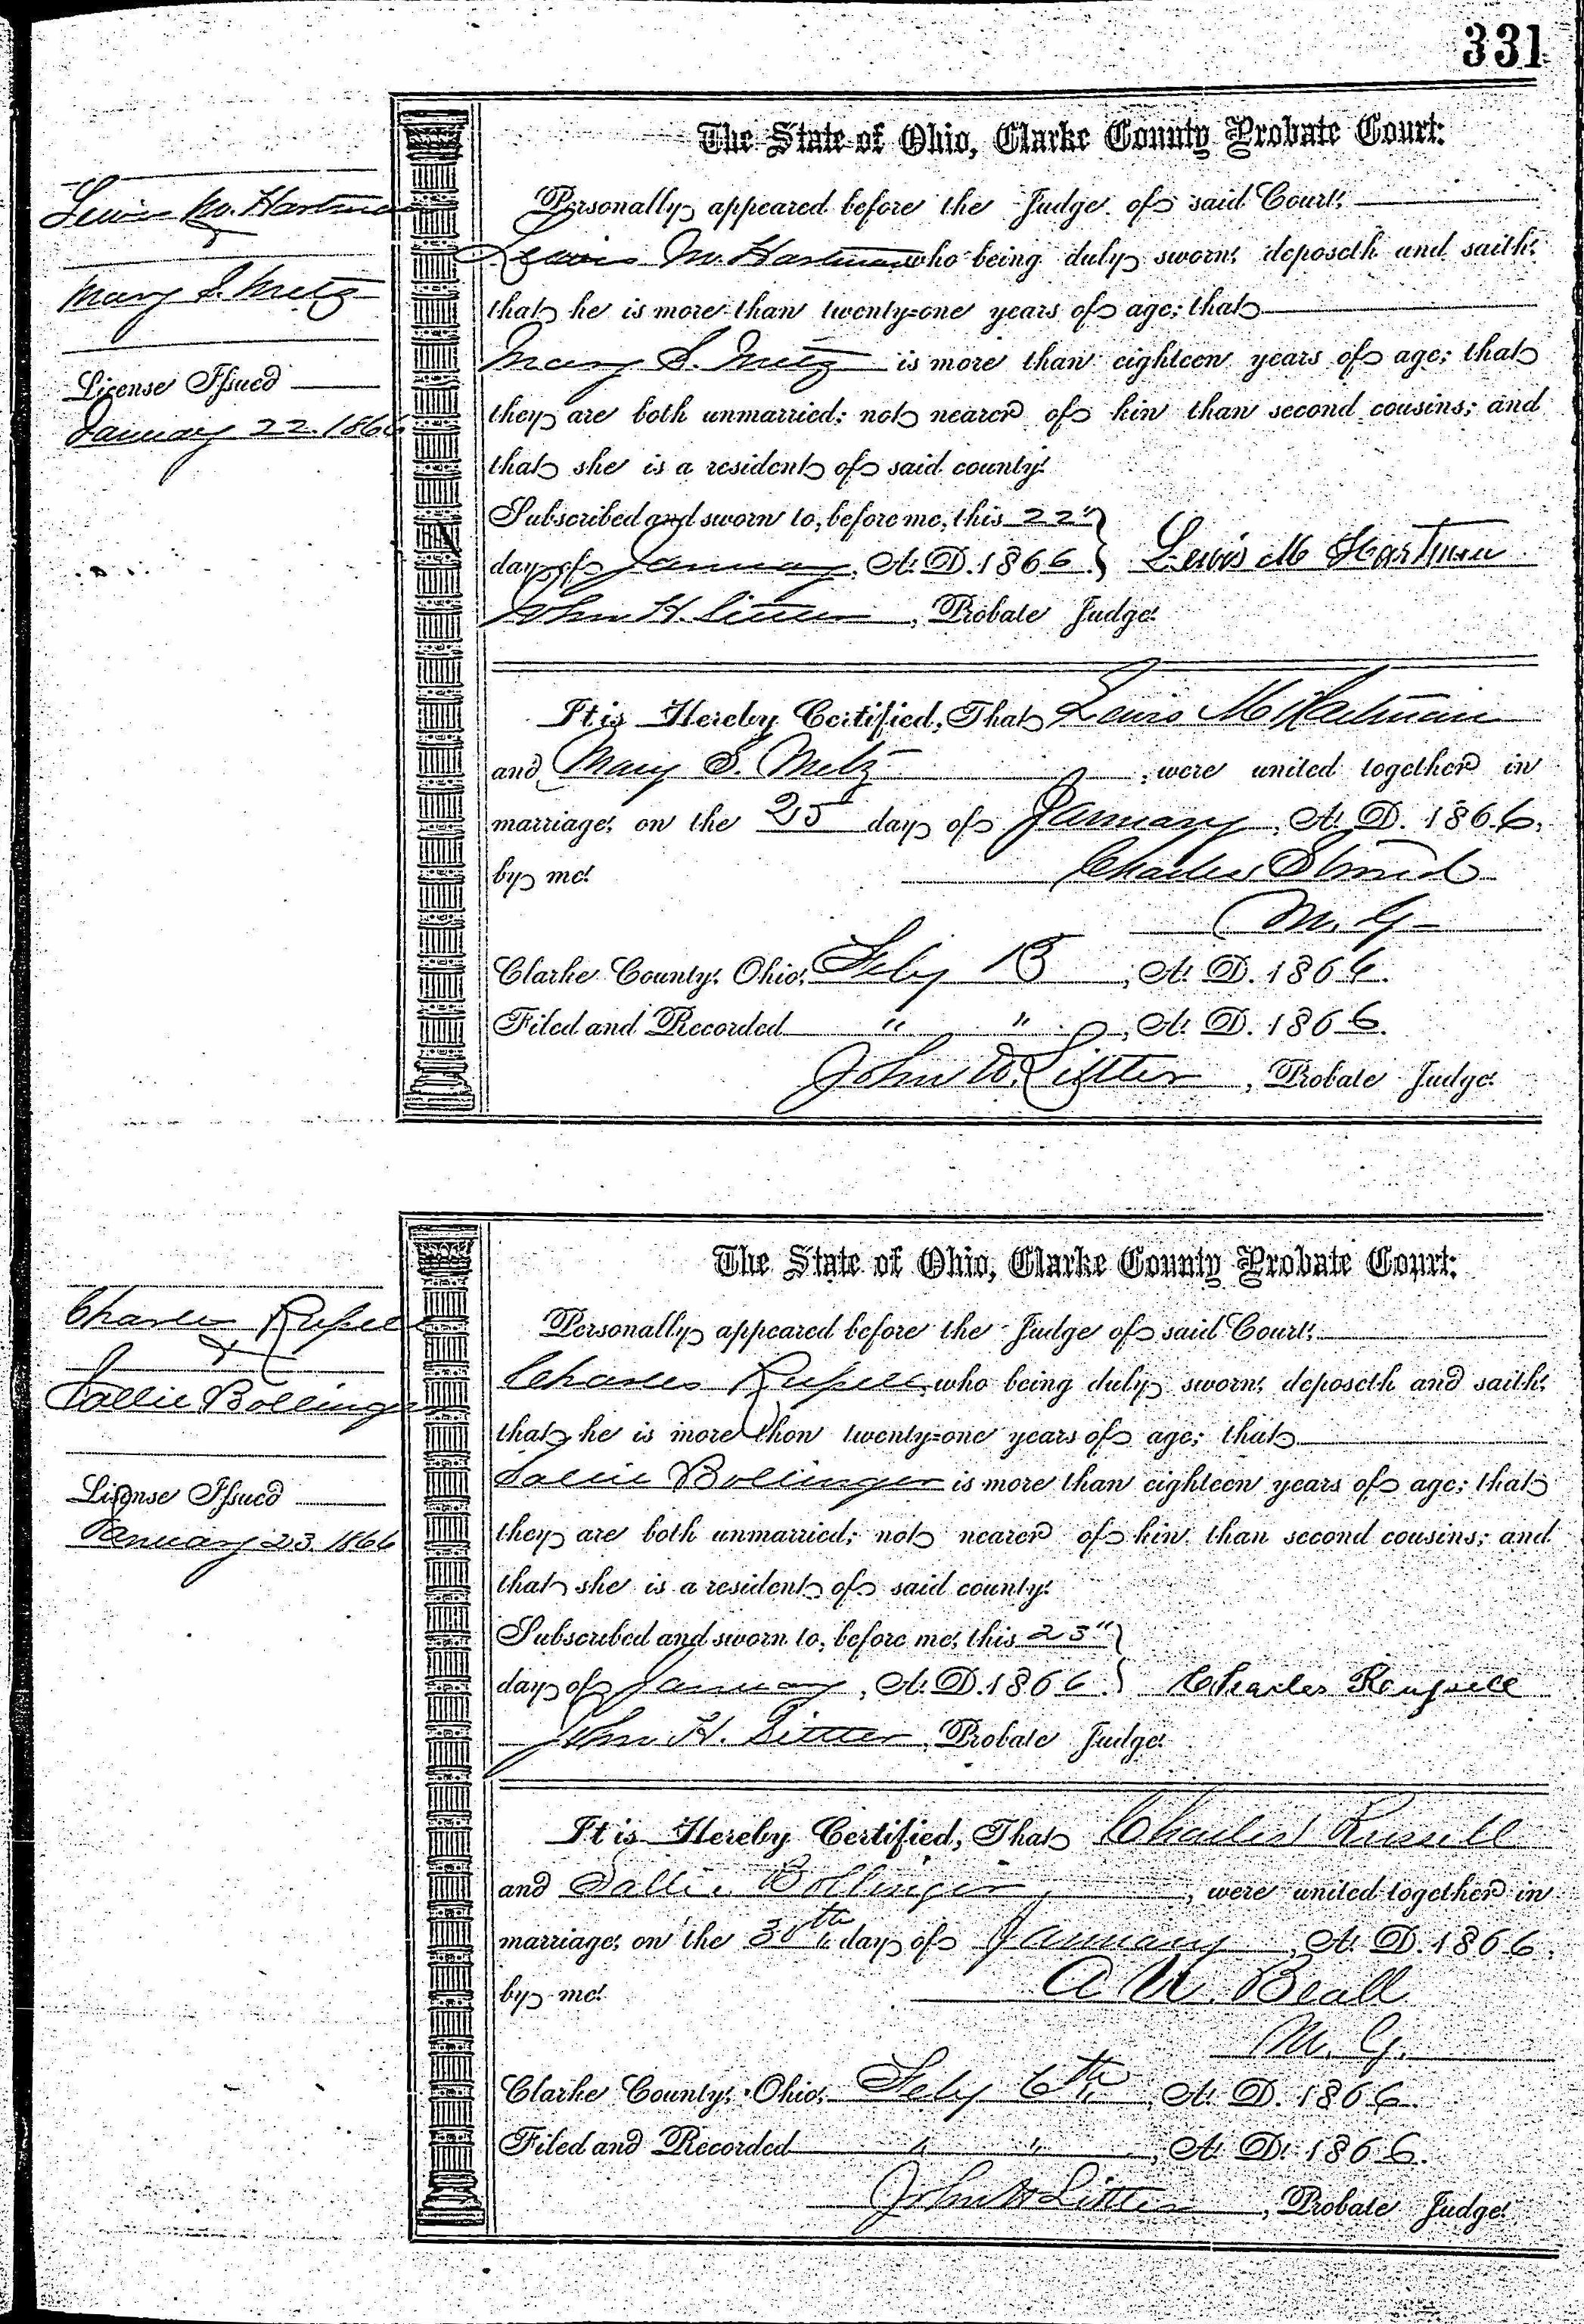 331
Lewis M. Hartman
&
Mary S. Metz
License Issued
January 22. 1866
The State of Ohio, Clarke County Probate Court:
Personally appeared before the Judge of said Court,
Lewis M. Hartman who being duly sworn, deposeth and saith,
that he is more than twenty=one years of age; that
Mary S. Metz is more than eighteen years of age; that
they are both unmarried; not nearer of kin than second cousins; and
that she is a resident of said county.
Subscribed and sworn to, before me, this 22"
day of January, A. D. 1866. Lewis M Hartman
John H. Littler, Probate Judge.
It is Hereby Certified, That Lewis M Hartman
and Mary S. Metz, were united together in
marriage, on the 25 day of January, A. D. 1866,
by me. Charles Stroud
M. G.
Clarke County, Ohio, Feby 13, A. D. 1866.
Filed and Recorded " ", A. D. 1866.
John H. Littler, Probate Judge.
Charles Russell
&
Sallie Bollinger
License Issued
January 23. 1866
The State of Ohio, Clarke County Probate Court:
Personally appeared before the Judge of said Court,
Charles Russell, who being duly sworn, deposeth and saith,
that he is more thon twenty=one years of age; that
Sallie Bollinger is more than eighteen years of age; that
they are both unmarried; not nearer of kin than second cousins; and
that she is a resident of said county.
Subscribed and sworn to, before me, this 23"
day of January, A. D. 1866. Charles Russell
John H. Littler, Probate Judge.
It is Hereby Certified, That Charles Russell
and Sallie Bollinger, were united together in
marriage, on the 30th day of January, A. D. 1866,
by me. A W. Beall
M. G.
Clarke County, Ohio, Feby 6th, A. D. 1866.
Filed and Recorded " ", A. D. 1866.
John H Littler, Probate Judge.